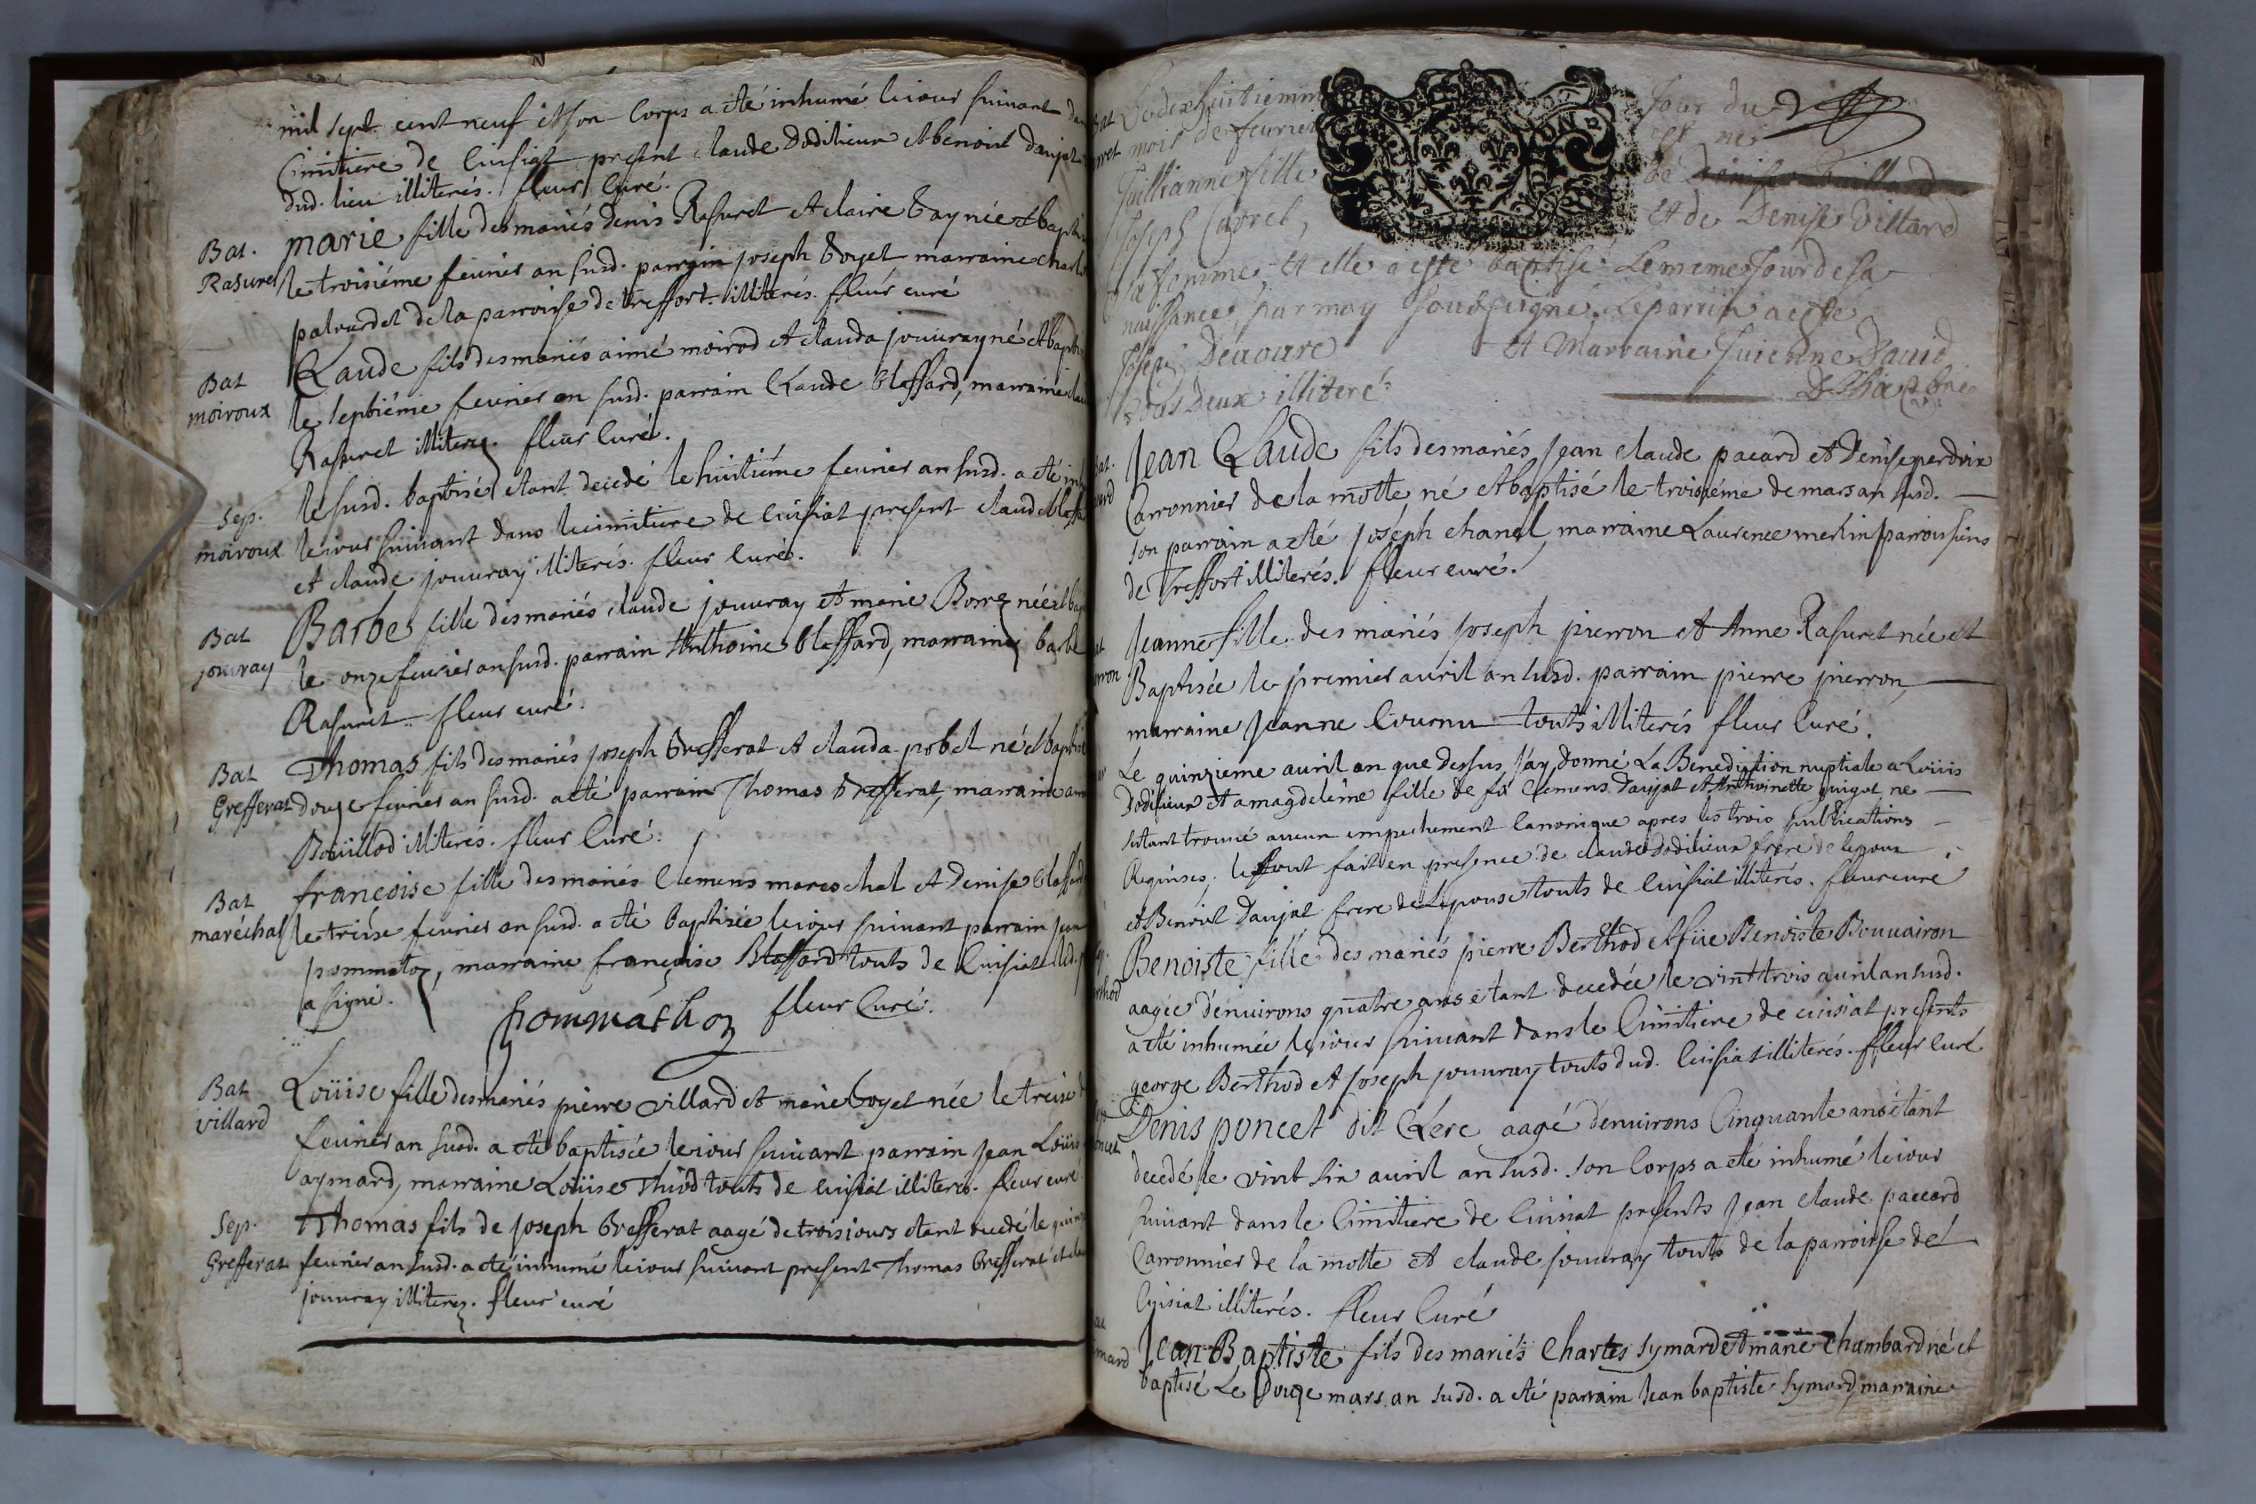 mil sept cent neuf et son corps a été inhumé le iour suiuant
cimitiere de Cuisiat present claude dodilieux et benoist daujat
dud. lieu illiterés. fleur curé.
Bat. Rasurel
marie fille des mariés denis Rasurel et claire Gay née et
le troisiéme feurier an susd. parrain joseph Goyet marraine
palourdet de la parroisse de treffort illiterés. fleur curé
Bat moiroux
Claude fils des mariés aimé moirod et clauda jouuray né et
le septiéme feurier an susd. parrain Claude blaffard, marraine
Rasurel illiterez. fleur curé.
Sep. moiroux
le susd. baptisé etant decedé le huitiéme feurier an susd. a eté
le iour suiuant dans le cimitiere de Cuisiat present claude
et claude jouuray illiterés. fleur curé.
Bat jouvray
Barbe fille des mariés claude jouuray et marie Borrez née et
le onze feurier an susd. parrain Anthoine blaffard, marraine barbe
Rasurel fleur curé.
Bat Grefferat
Thomas fils des mariés joseph Grefferat et clauda pobel né et
douze feurier an susd. a eté parrain Thomas Grefferat, marraine
Bouillod illiterés. fleur curé.
Bat maréchal
francoise fille des mariés Clemens mareschal et denise blaffard
le treise feurier an susd. a eté baptisée le iour suiuant parrain
pommatoz, marraine françoise Blaffard touts de Cuisiat led.
a signé.
pommathoz fleur Curé.
Bat villard
Loüise fille des mariés pierre villard et marie Goyet née le treise
feurier an susd. a eté baptisée le iour suiuant parrain jean Loüis
aymard, marraine Loüise Thiod touts de Cuisiat illiteres. fleur curé
Sep. Grefferat
Thomas fils de joseph Grefferat aagé de trois iours etant decedé le
feurier an susd. a eté inhumé le iour suiuant present Thomas Grefferat et
jouuray illiterez. fleur curé
Lodixhuitiemme jour du
mois de feurier est née
Jullianne fille de
Joseph Carrel, et de Denise Villard
sa femme et elle a este baptisé le meme jour de sa
naissance par moy soubsigné. Le parrin a este
et Marraine
tous Deux illiteré
Jean Claude fils des mariés jean claude pacard et denise perdrix
Carronnier de la motte né et baptisé le troisiéme de mars an susd.
son parrain a eté joseph chanel, marraine Laurence merlin parroissiens
de Treffort illiterés. fleur curé.
Jeanne fille des mariés joseph pierron et Anne Rasurel née et
Baptisée le premier auril an susd. parrain pierre pierron,
marraine jeanne Cournu touts illiterés fleur curé.
Le quinzieme auril an que dessus j'ay donné La Benediction nuptiale a Loüis
Dodilieux et a magdeleine fille de fû Clemens Daujat et Anthoinette guigot ne
sestant trouué aucun empeschement Canonique apres les trois publications
Requises, le tout fait en presence de claude dodilieux frere de lepoux
et Benoist Daujat frere de lepouse touts de Cuisiat illiterés. fleur curé
Benoiste fille des mariés pierre Berthod et füe Benoiste Bouuairon
aagée d'enuirons quatre ans etant decedée le vint trois auril an susd.
a eté inhumée le iour suiuant dans le Cimitiere de cuisiat presents
george Berthod et joseph jouuray touts dud. Cuisiat illiterés. fleur curé
Denis poncet dit Clerc aagé d'enuirons Cinquante ans etant
decedé le vint six auril an susd. son Corps a eté inhumé le iour
suiuant dans le Cimitiere de Cuisiat presents jean claude paccard
Carronnier de la motte et claude jouuray touts de la parroisse de
Cuisiat illiterés. fleur Curé
Jean Baptiste fils des mariés Charles symard et marie chambard né et
baptisé Le Douze mars an susd. a eté parrain Jean baptiste symard, marraine